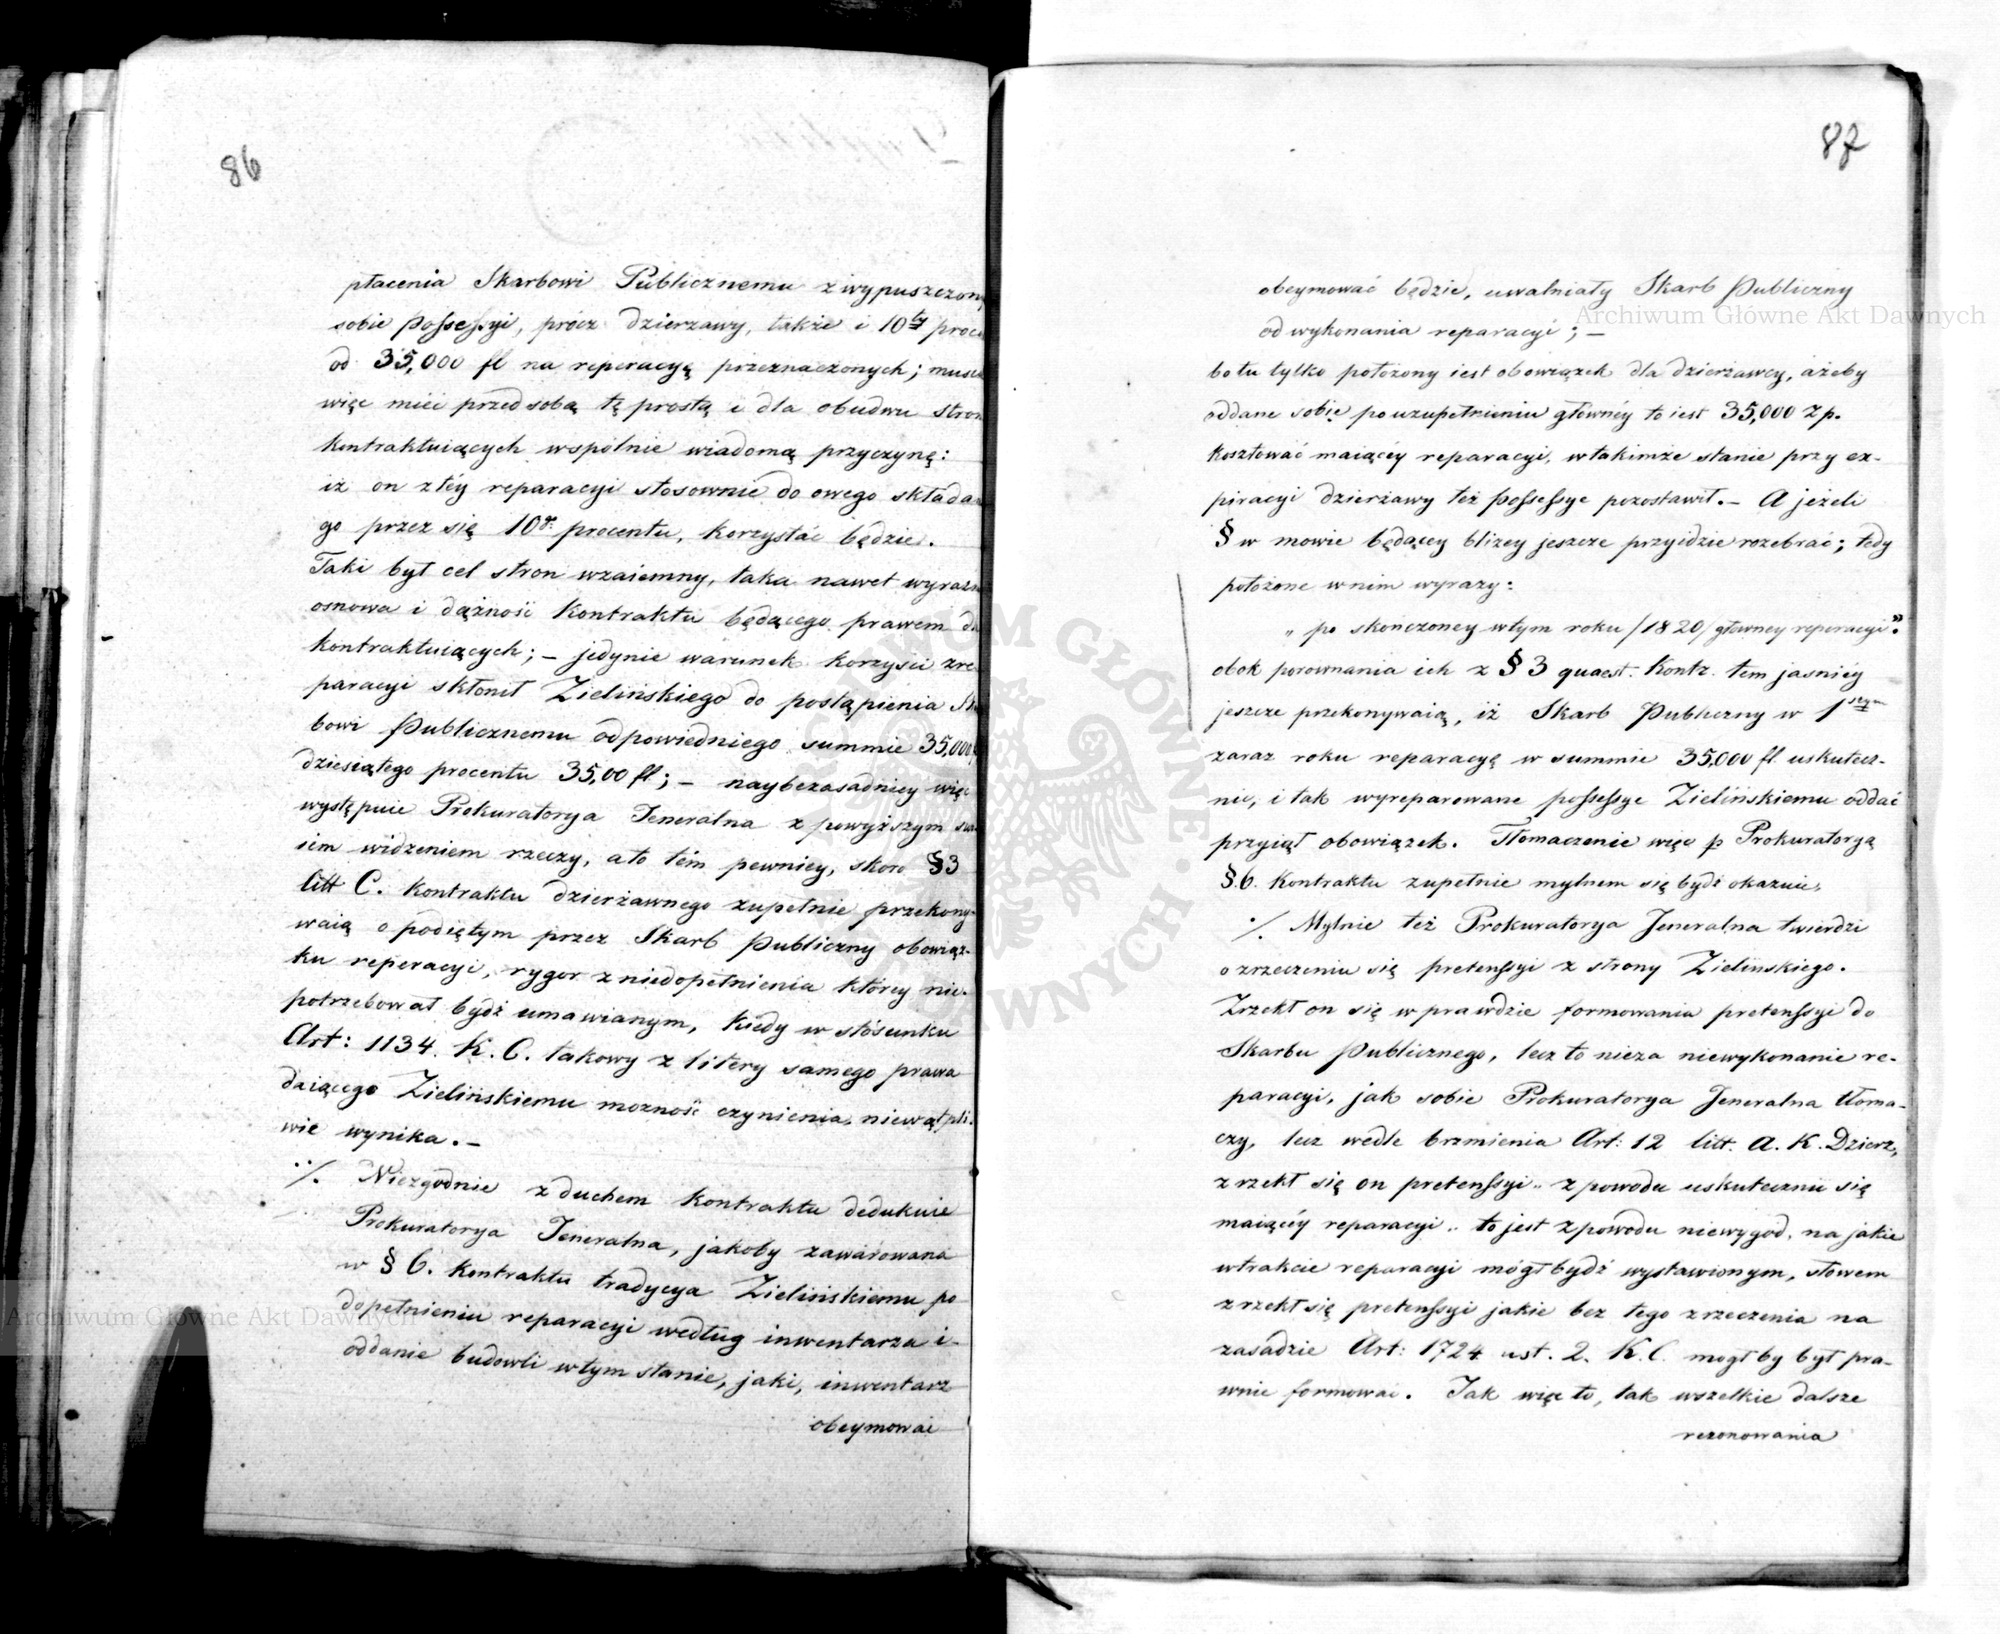 86
płacenia Skarbowi Publicznemu z wypuszczoney
sobie Possessyi, prócz dzierzawy, także i 10ty proce
od 35,000 fl na reperacyą przeznaczonych; musia
więc mieć przed sobą tę prostą i dla obudwu stron
kontraktuiących wspólnie wiadomą przyczynę:
iż on z téy reparacyi stosownie do owego składan
go przez się 10o. procentu, korzystać będzie.
Taki był cel stron wzaiemny, taka nawet wyrazna
osnowa i dążność Kontraktu będącego prawem dla
kontraktuiących; – jedynie warunek korzyści z re
paracyi skłonił Zielińskiego do postąpienia Ska
bowi Publicznemu odpowiedniego summie 35,000
dziesiątego procentu 35,00 fl; – naybezasadniey więc
występuie Prokuratorya Jeneralna z powyższym swo
iem widzeniem rzeczy, a to tém pewniey, skoro §3
litt C. Kontraktu dzierżawnego zupełnie przekony-
waią o podiętym przez Skarb Publiczny obowiąz-
ku reperacyi, rygor z niedopełnienia którey nie-
potrzebował bydź umawianym, kiedy w stósunku
Art: 1134. K. C. takowy z litery samego prawa
daiącego Zielińskiemu możność czynienia, niewątpli-
wie wynika. –
../. Niezgodnie z duchem Kontraktu dedukuie
Prokuratorya Jeneralna, jakoby zawarowana
w § 6. Kontraktu tradycya Zielińskiemu po
dopełnieniu reparacyi według inwentarza i
oddanie budowli w tym stanie, jaki, inwentarz
obeymowac
87
obeymować będzie, uwalniały Skarb Publiczny
od wykonania reparacyi; –
bo tu tylko położony iest obowiązek dla dzierżawcy, ażeby
oddane sobie po uzupełnieniu główney to iest 35,000 zp.
kosztować maiącéy reparacyi, w takimże stanie przy ex-
piracyi dzierżawy też possessye pozostawił. – A jeżeli
§ w mowie będącey bliżey jeszcze przyidzie rozebrać; tedy
położone w nim wyrazy:
„ po skończoney w tym roku /1820/ główney reperacyi."
obok porownania ich z § 3 quaest: Kontr. tem jasniéy
jeszcze przekonywaią, iż Skarb Publiczny w 1szym
zaraz roku reparacyą w summie 35,000 fl uskutecz-
nić, i tak wyreparowane possessye Zielińskiemu oddać
przyiął obowiązek. Tłomaczenie więc p Prokuratoryą
§.6. Kontraktu zupełnie mylnem się bydź okazuie.
./. Mylnie też Prokuratorya Jeneralna twierdzi
o zrzeczeniu się pretenssyi z strony Zielińskiego.
Zrzekł on się wprawdzie formowania pretenssyi do
Skarbu Publicznego, lecz to nie za niewykonanie re-
paracyi, jak sobie Prokuratorya Jeneralna tłoma-
czy, lecz wedle brzmienia Art: 12 litt. A. K. Dzierz,
zrzekł się on pretenssyi „ z powodu uskutecznić się
maiącéy reparacyi „ to jest z powodu niewygod, na jakie
w trakcie reparacyi mógł bydź wystawionym, słowem
zrzekł się pretenssyi jakie bez tego zrzeczenia na
zasadzie Art: 1724 ust. 2. K. C. mogł by był pra-
wnie formować. Jak więc to, tak wszelkie dalsze
rezonowania
Archiwum Główne Akt Dawnych
Archiwum Główne Akt Dawnych
ARCHIWUM GŁÓWNE AKT DAWNYCH